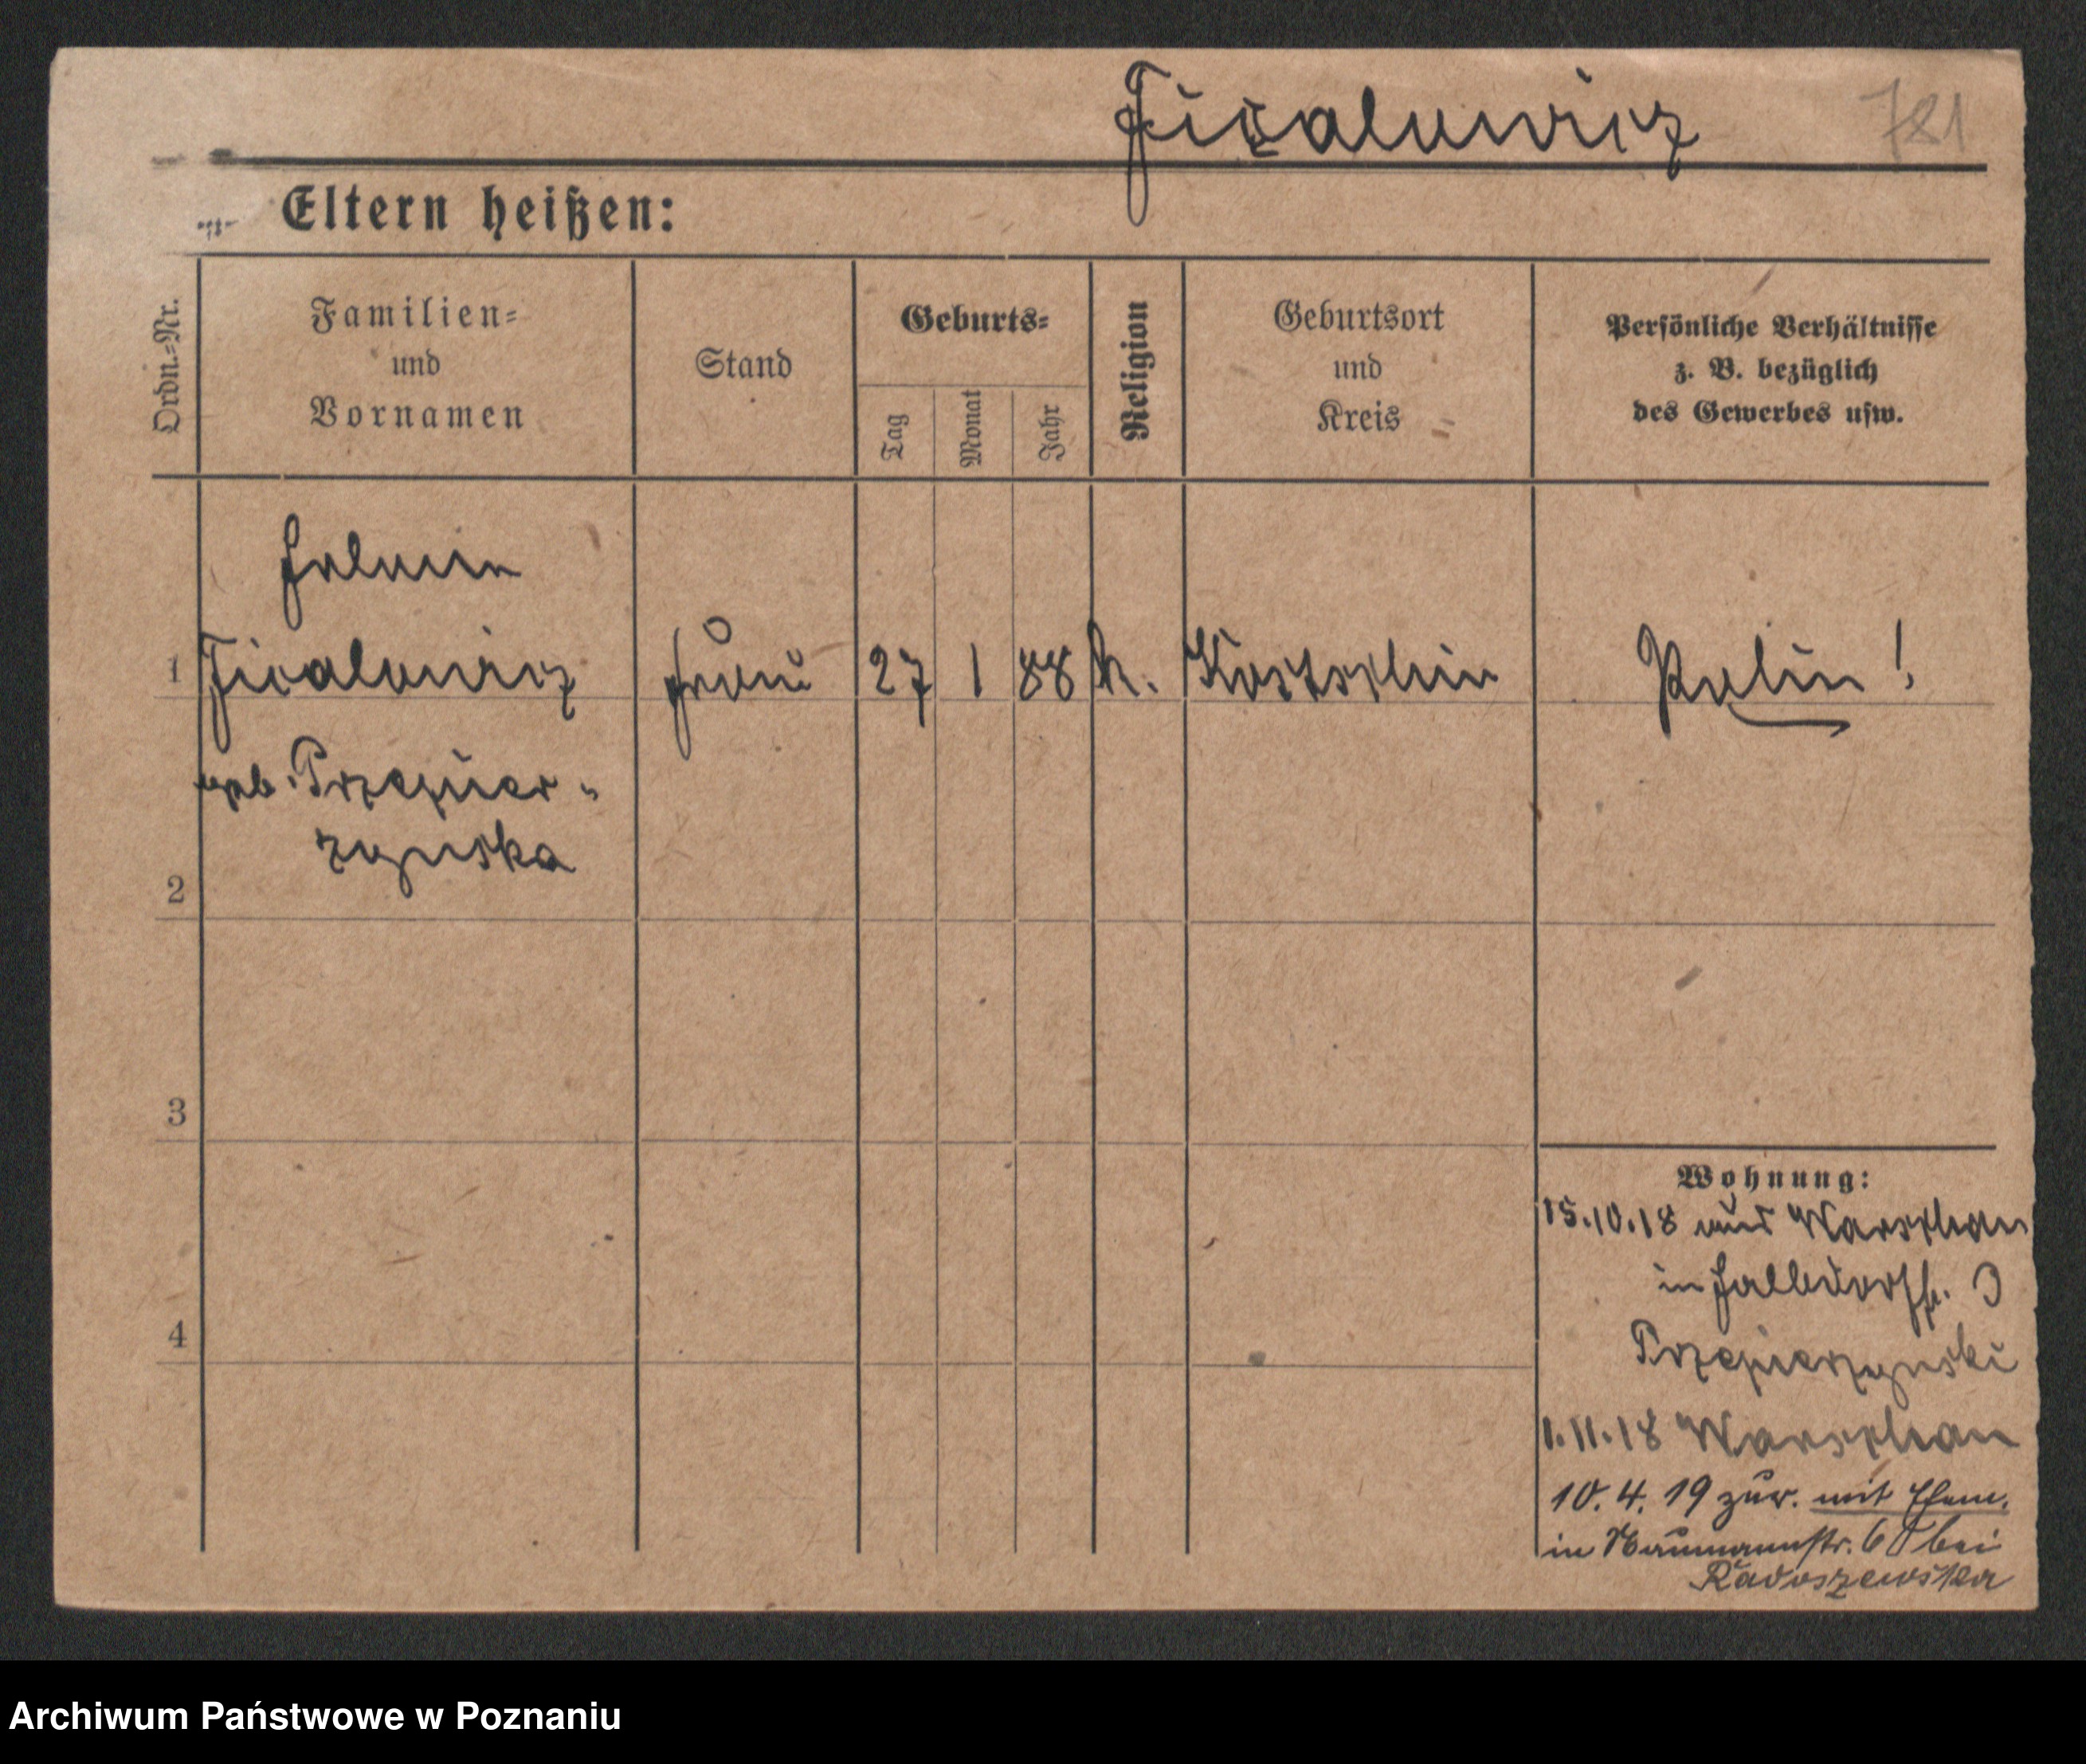 Ficalowicz 781
Eltern heißen:
Ordn.-Nr.
Familien-
und
Vornamen
Stand
Geburts-
Tag
Monat
Jahr
Religion
Geburtsort
und
Kreis
Persönliche Verhältnisse
z. B. bezüglich
des Gewerbes usw.
1 Ficalowicz Frau 27 1 88 k. Kostschin Polin!
geb.
zynska
2
3
4
Wohnung:
15.10.18 aus Warschau
in Halldorfstr. 3
1.11.18 Warschau
10.4.19 zur. mit Ehem.
in Naumannstr. 6 bei
Radoszewska
Archiwum Państwowe w Poznaniu